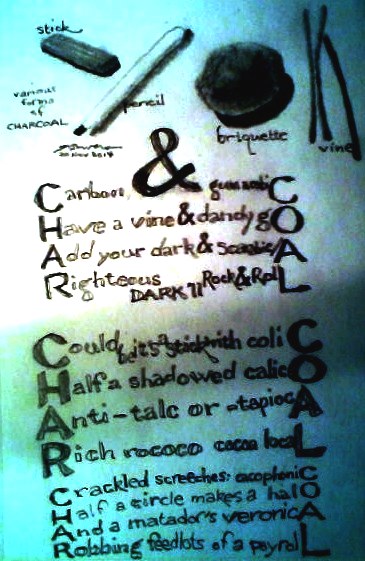 stick
various
forms
of
CHARCOAL
pencil
briquette
vine
&
Carbon, gum arabiC
Have a vine & dandy gO
Add your dark &
Righteous DARK Rock & RolL
Could stick with coliC
Half a shadowed calicO
Anti-talc or -tapiocA
Rich rococo cocoa locaL
Crackled screeches: cacophoniC
Half a circle makes a halO
And a matador's veronicA
Robbing feedlots of a payrolL